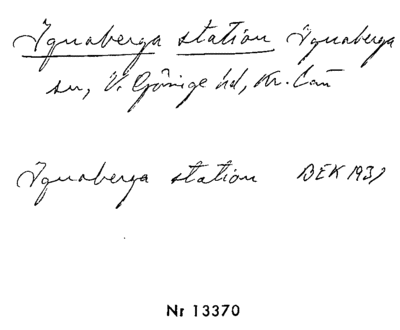 Ignaberga station Ignaberga
sn, V. Göinge hd, Kr. län
Ignaberga station BEK 1937
Nr 13370